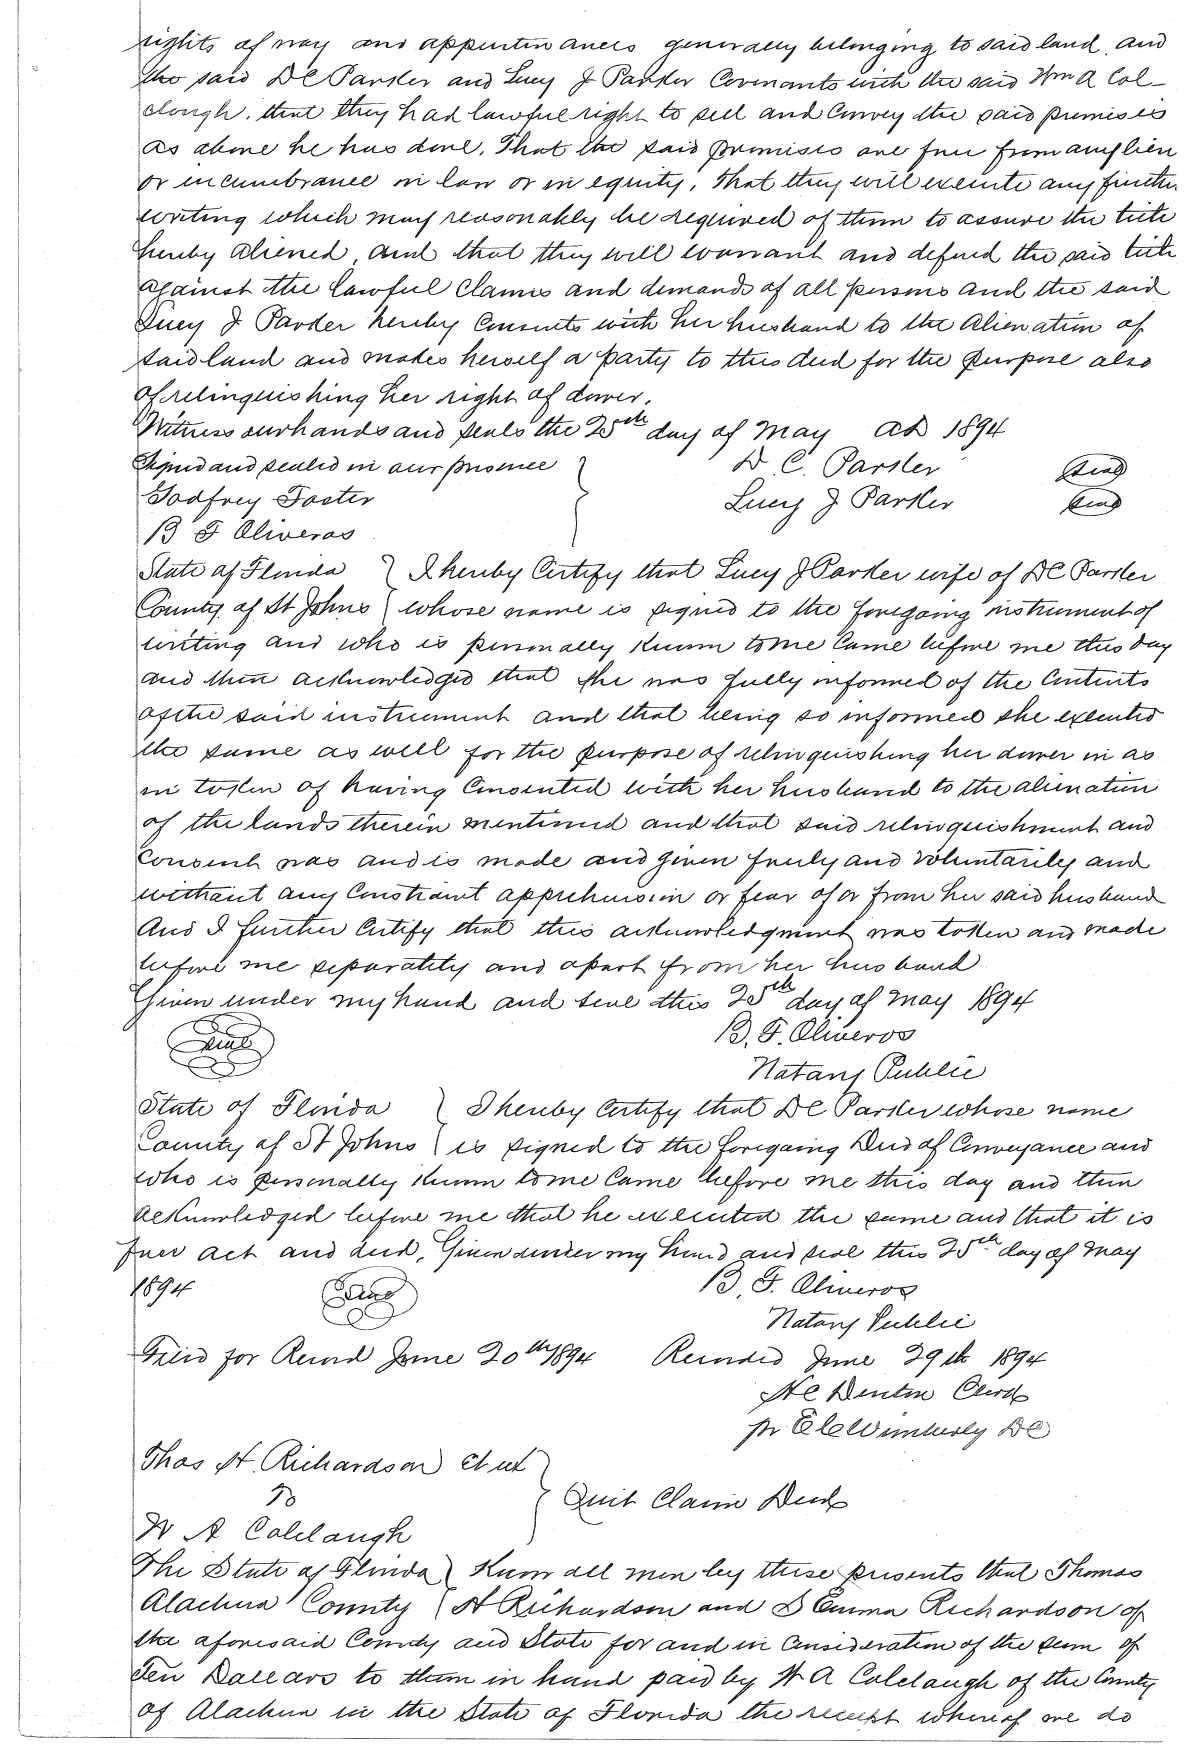 rights of way and appurtenances generally belonging to said land and
the said D C Parker and Lucy J Parker Covenants with the said Wm A Col-
clough. that they had lawful right to sell and Convey the said premises
as above he has done. That the said premises are free from any lien
or incumbrance in law or in equity. That they will execute any further
writing which may reasonably be required of them to assure the title
hereby aliened, and that they will warrant and defend the said title
against the lawful claims and demands of all persons and the said
Lucy J Parker hereby Consents with her husband to the Alienation of
said land and makes herself a party to this deed for the purpose also
of relinquishing her right of dower.
Witness our hands and seals the 25th day of May AD 1894
Signed and sealed in our presence } D. C. Parker (Seal)
Godfrey Foster Lucy J Parker (Seal)
B F Oliveros
State of Florida } I hereby Certify that Lucy J Parker wife of D C Parker
County of St Johns } whose name is signed to the foregoing instrument of
writing and who is personally known to me Came before me this day
and then acknowledged that she was fully informed of the Contents
of the said instrument and that being so informed she executed
the same as well for the purpose of relinquishing her dower in as
in token of having Consented with her husband to the alienation
of the lands therein mentioned and that said relinquishment and
Consent was and is made and given freely and voluntarily and
without any Constraint apprehension or fear of or from her said husband
And I further Certify that this acknowledgment was taken and made
before me separately and apart from her husband
Given under my hand and seal this 25th day of May 1894
(Seal) B. F. Oliveros
Notary Public
State of Florida } I hereby Certify that D C Parker whose name
County of St Johns } is signed to the foregoing Deed of Conveyance and
who is personally known to me Came before me this day and then
acknowledged before me that he executed the same and that it is
free act and deed. Given under my hand and seal this 25th day of May
1894 (Seal) B. F. Oliveros
Notary Public
Filed for Record June 20th 1894 Recorded June 29th 1894
H C Denton Clerk
pr E C Wimberly DC
Thos H. Richardson et ux }
To } Quit Claim Deed
W A Colclaugh
The State of Florida } Know all men by these presents that Thomas
Alachua County } H Richardson and S Emma Richardson of
the aforesaid County and State for and in Consideration of the sum of
Ten Dollars to them in hand paid by W A Colclaugh of the County
of Alachua in the State of Florida the receipt whereof we do